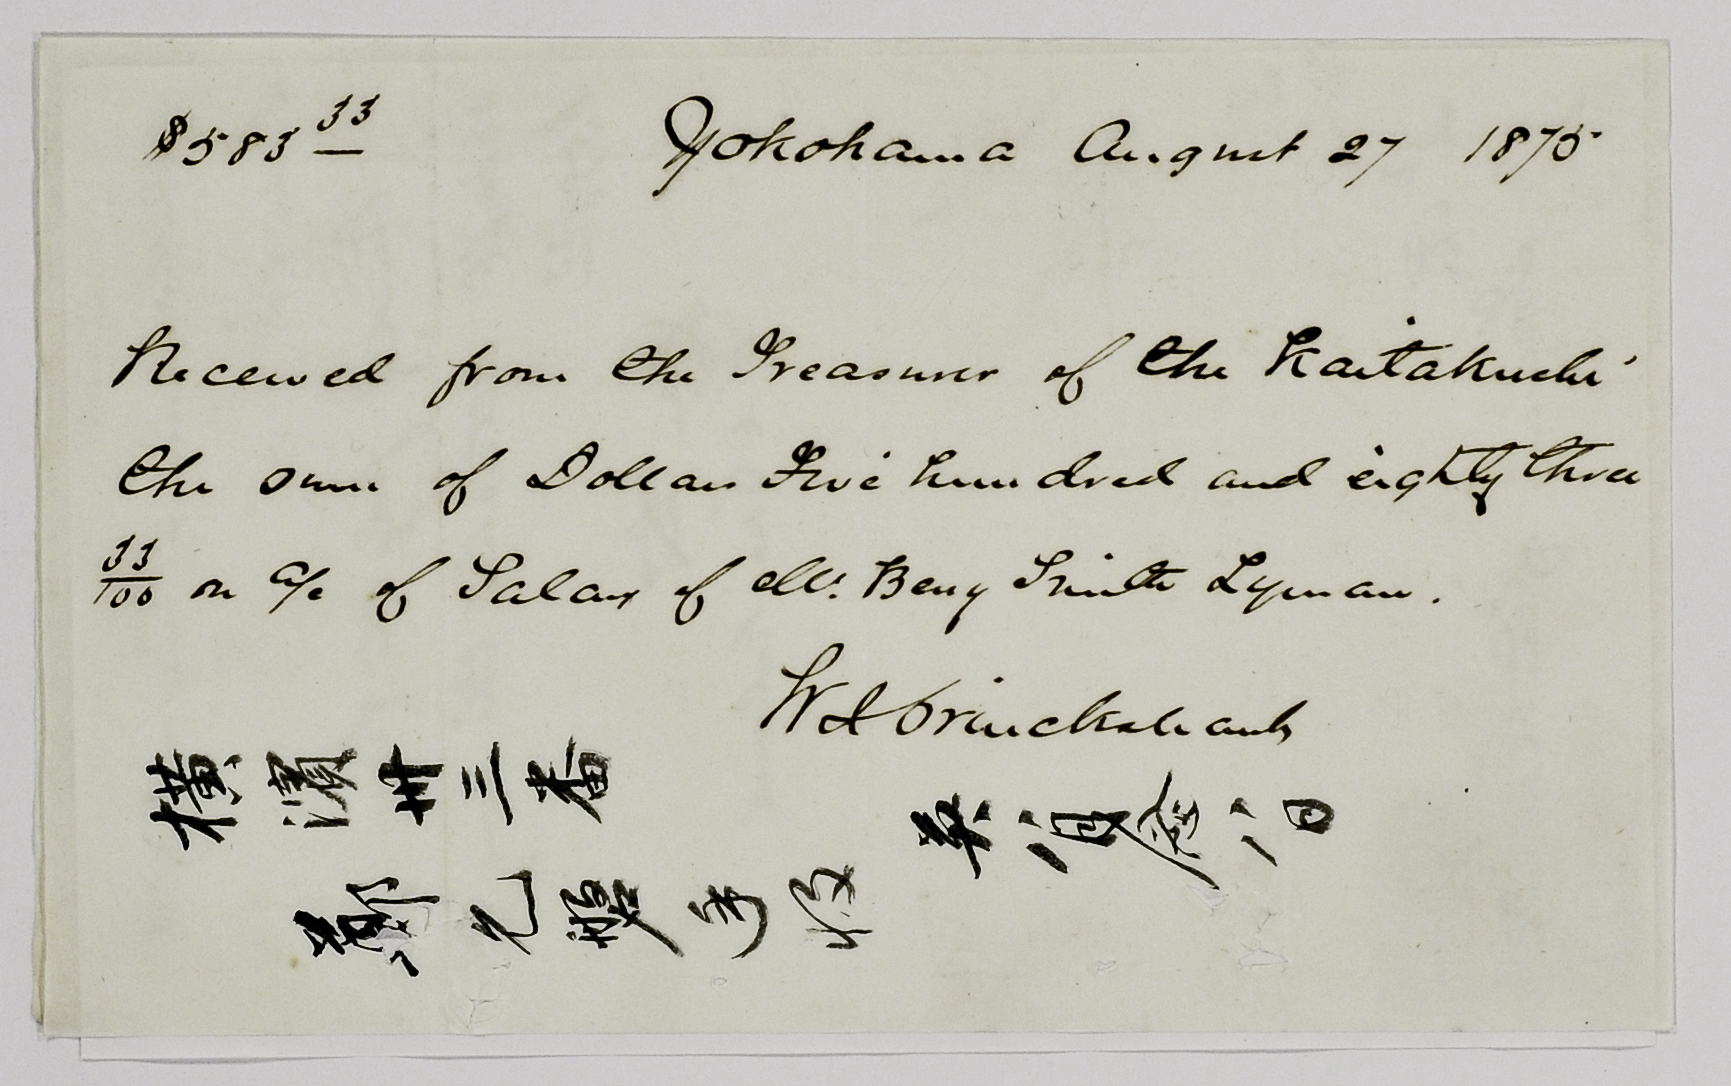 $583 33
Yokohama August 27 1875
Received from the Treasurer of the Kaitakushi
the sum of Dollars Five hundred and eighty three
33/100 on a/c of Salary of Mr. Benj Smith Lyman.
W J Cruickshank
横濱卅三番